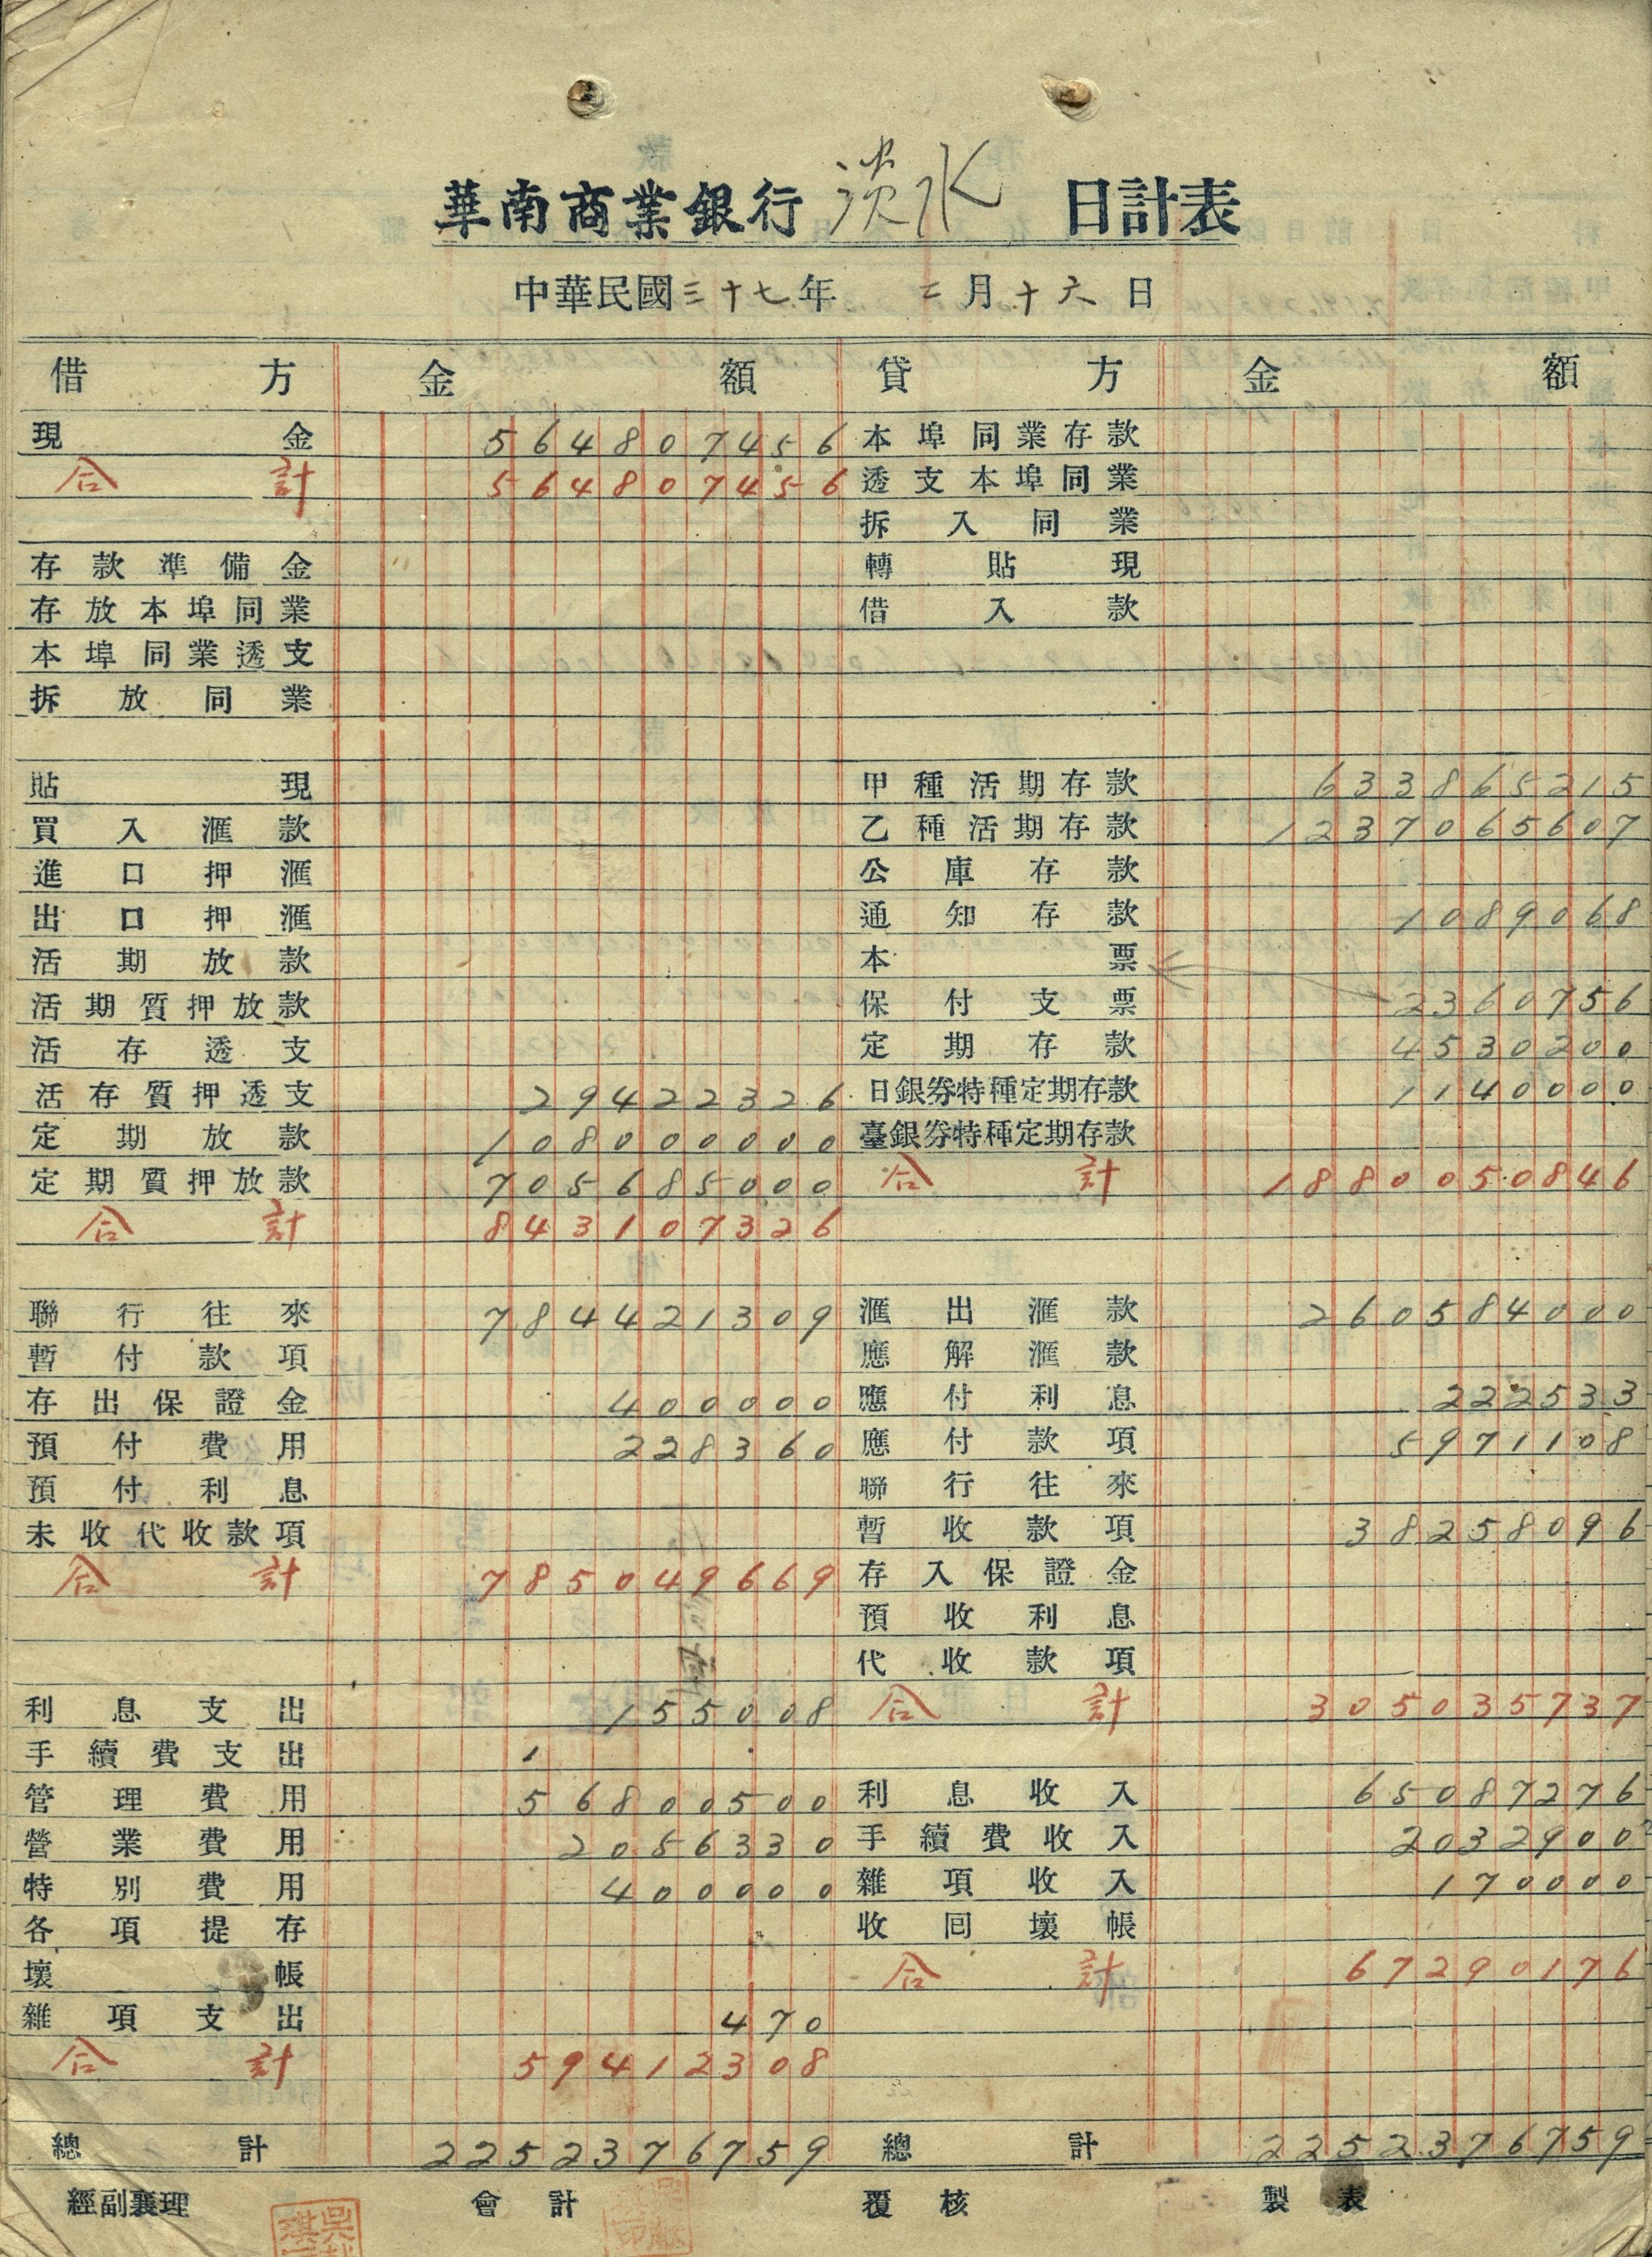 華南商業銀行 淡水 日計表
中華民國三十七年 二月十六日
借方 金額 貸方 金額
現金 564807456 本埠同業存款
合計 564807456 透支本埠同業
拆入同業
存款準備金 轉貼現
存放本埠同業 借入款
本埠同業透支
拆放同業
貼現 甲種活期存款 633865215
買入滙款 乙種活期存款 1237065607
進口押滙 公庫存款
出口押滙 通知存款 1089068
活期放款 本票
活期質押放款 保付支票 2360756
活存透支 定期存款 4530200
活存質押透支 29422326 日銀券特種定期存款 1140000
定期放款 108000000 臺銀券特種定期存款
定期質押放款 705685000 合計 1880050846
合計 843107326
聯行往來 784421309 滙出滙款 260584000
暫付款項 應解滙款
存出保證金 400000 應付利息 222533
預付費用 228360 應付款項 5971108
預付利息 聯行往來
未收代收款項 暫收款項 38258096
合計 785049669 存入保證金
預收利息
代收款項
利息支出 155008 合計 305035737
手續費支出 1
管理費用 56800500 利息收入 65087276
營業費用 2056330 手續費收入 2032900
特別費用 400000 雜項收入 170000
各項提存 收回壞帳
壞帳 合計 67290176
雜項支出 470
合計 59412308
總計 2252376759 總計 2252376759
經副襄理 會計 覆核 製表